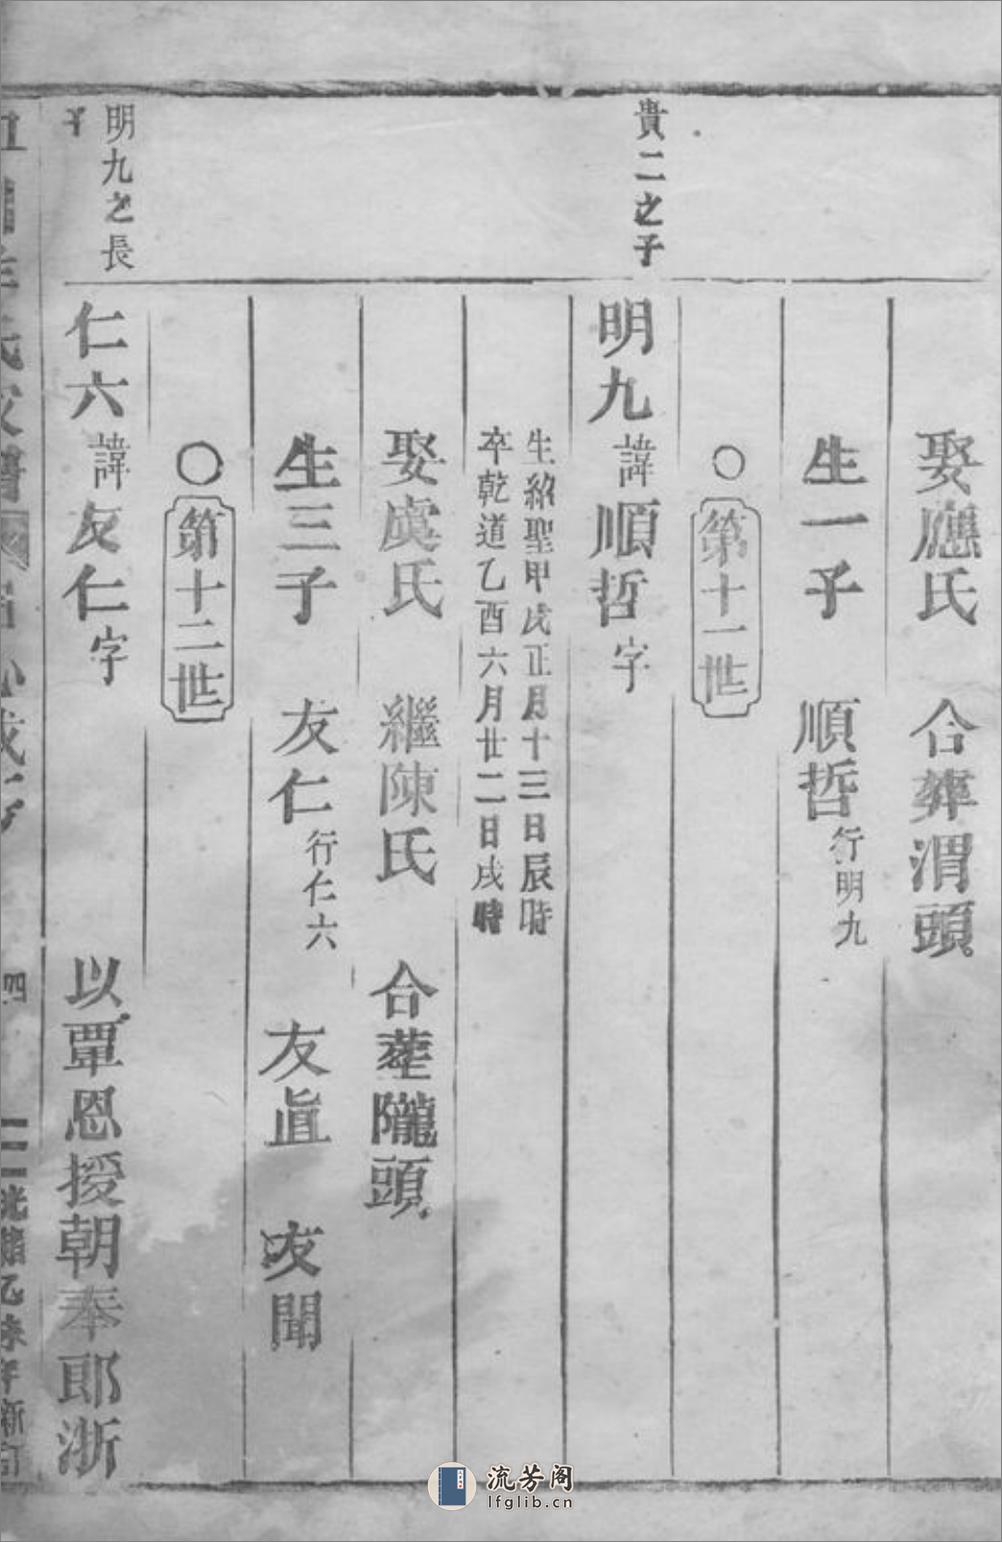 娶應氏　合葬渭頭
生一子　順哲行明九
○第十一世
貴二之子
明九諱順哲字
生紹聖甲戌正月十三日辰時
卒乾道乙酉六月廿二日戌時
娶虞氏　繼陳氏　合葬隴頭
生三子　友仁行仁六　友眞　友聞
○第十二世
明九之長
子
仁六諱友仁字　以覃恩授朝奉郎浙
四
光緒乙未年新訂
流芳阁
lfglib.cn